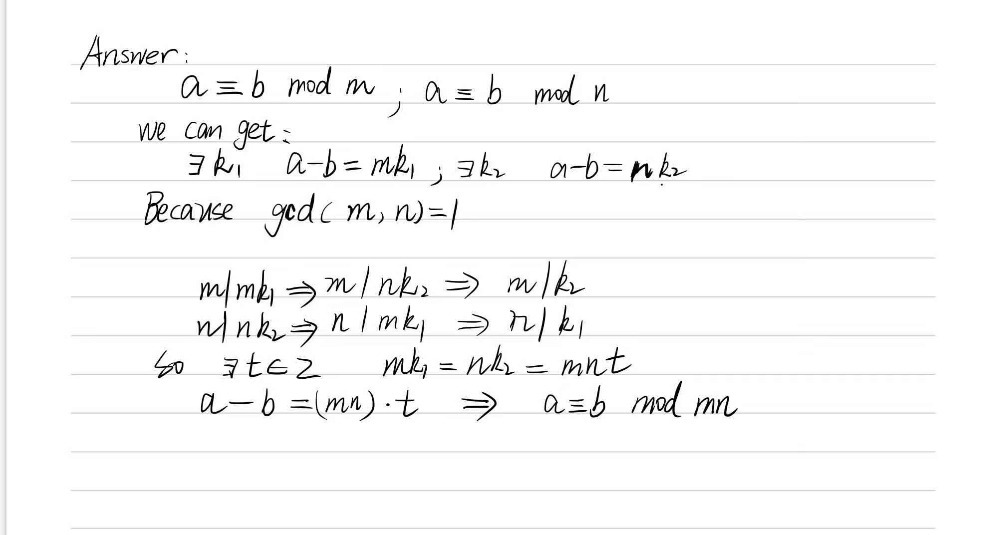 Answer:
a ≡ b mod m ; a ≡ b mod n
we can get:
∃ k₁ a-b = mk₁ ; ∃ k₂ a-b = nk₂
Because gcd( m, n)=1
m|mk₁ ⇒ m | nk₂ ⇒ m|k₂
n|nk₂ ⇒ n | mk₁ ⇒ n|k₁
So ∃ t ∈ Z mk₁ = nk₂ = mnt
a-b = (mn)·t ⇒ a≡b mod mn